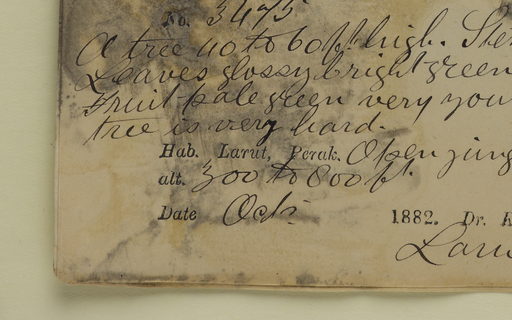 No. 3475
A tree 40 to 60 ft high. Ste
Leaves glossy bright green
Fruit pale green very you
tree is very hard.
Hab. Larut, Perak. Open jung
alt. 300 to 800 ft.
Date Oct: 1882. Dr. K
Laru